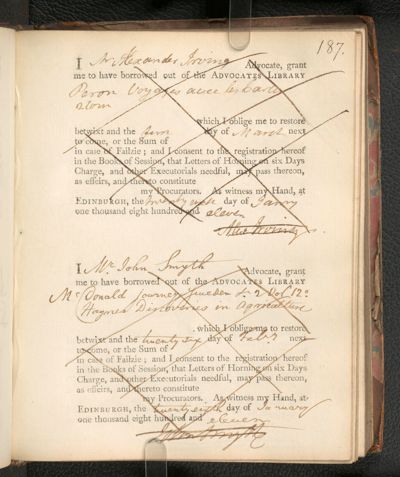 187.
I Mr Alexander Irving Advocate, grant
me to have borrowed out of the ADVOCATES LIBRARY
Peron Voyages avec les Carte
2 tom
which I oblige me to restore
betwixt and the day of March next
to come, or the Sum of
in case of Failzie; and I consent to the registration hereof
in the Books of Session, that Letters of Horning on six Days
Charge, and other Executorials needful, may pass thereon,
as effeirs, and thereto constitute
my Procurators. As witness my Hand, at
EDINBURGH, the twenty day of Janry
one thousand eight hundred and eleven
Alex Irving
I Mr. John Smyth Advocate, grant
me to have borrowed out of the ADVOCATES LIBRARY
McDonald Journey Sweden &c 2 Vol 12o
Haynes Discoveries in Agriculture
which I oblige me to restore
betwixt and the twenty six day of Febry next
to come, or the Sum of
in case of Failzie; and I consent to the registration hereof
in the Books of Session, that Letters of Horning on six Days
Charge, and other Executorials needful, may pass thereon,
as effeirs, and thereto constitute
my Procurators. As witness my Hand, at
EDINBURGH, the twenty sixth day of January
one thousand eight hundred and eleven
John Smyth